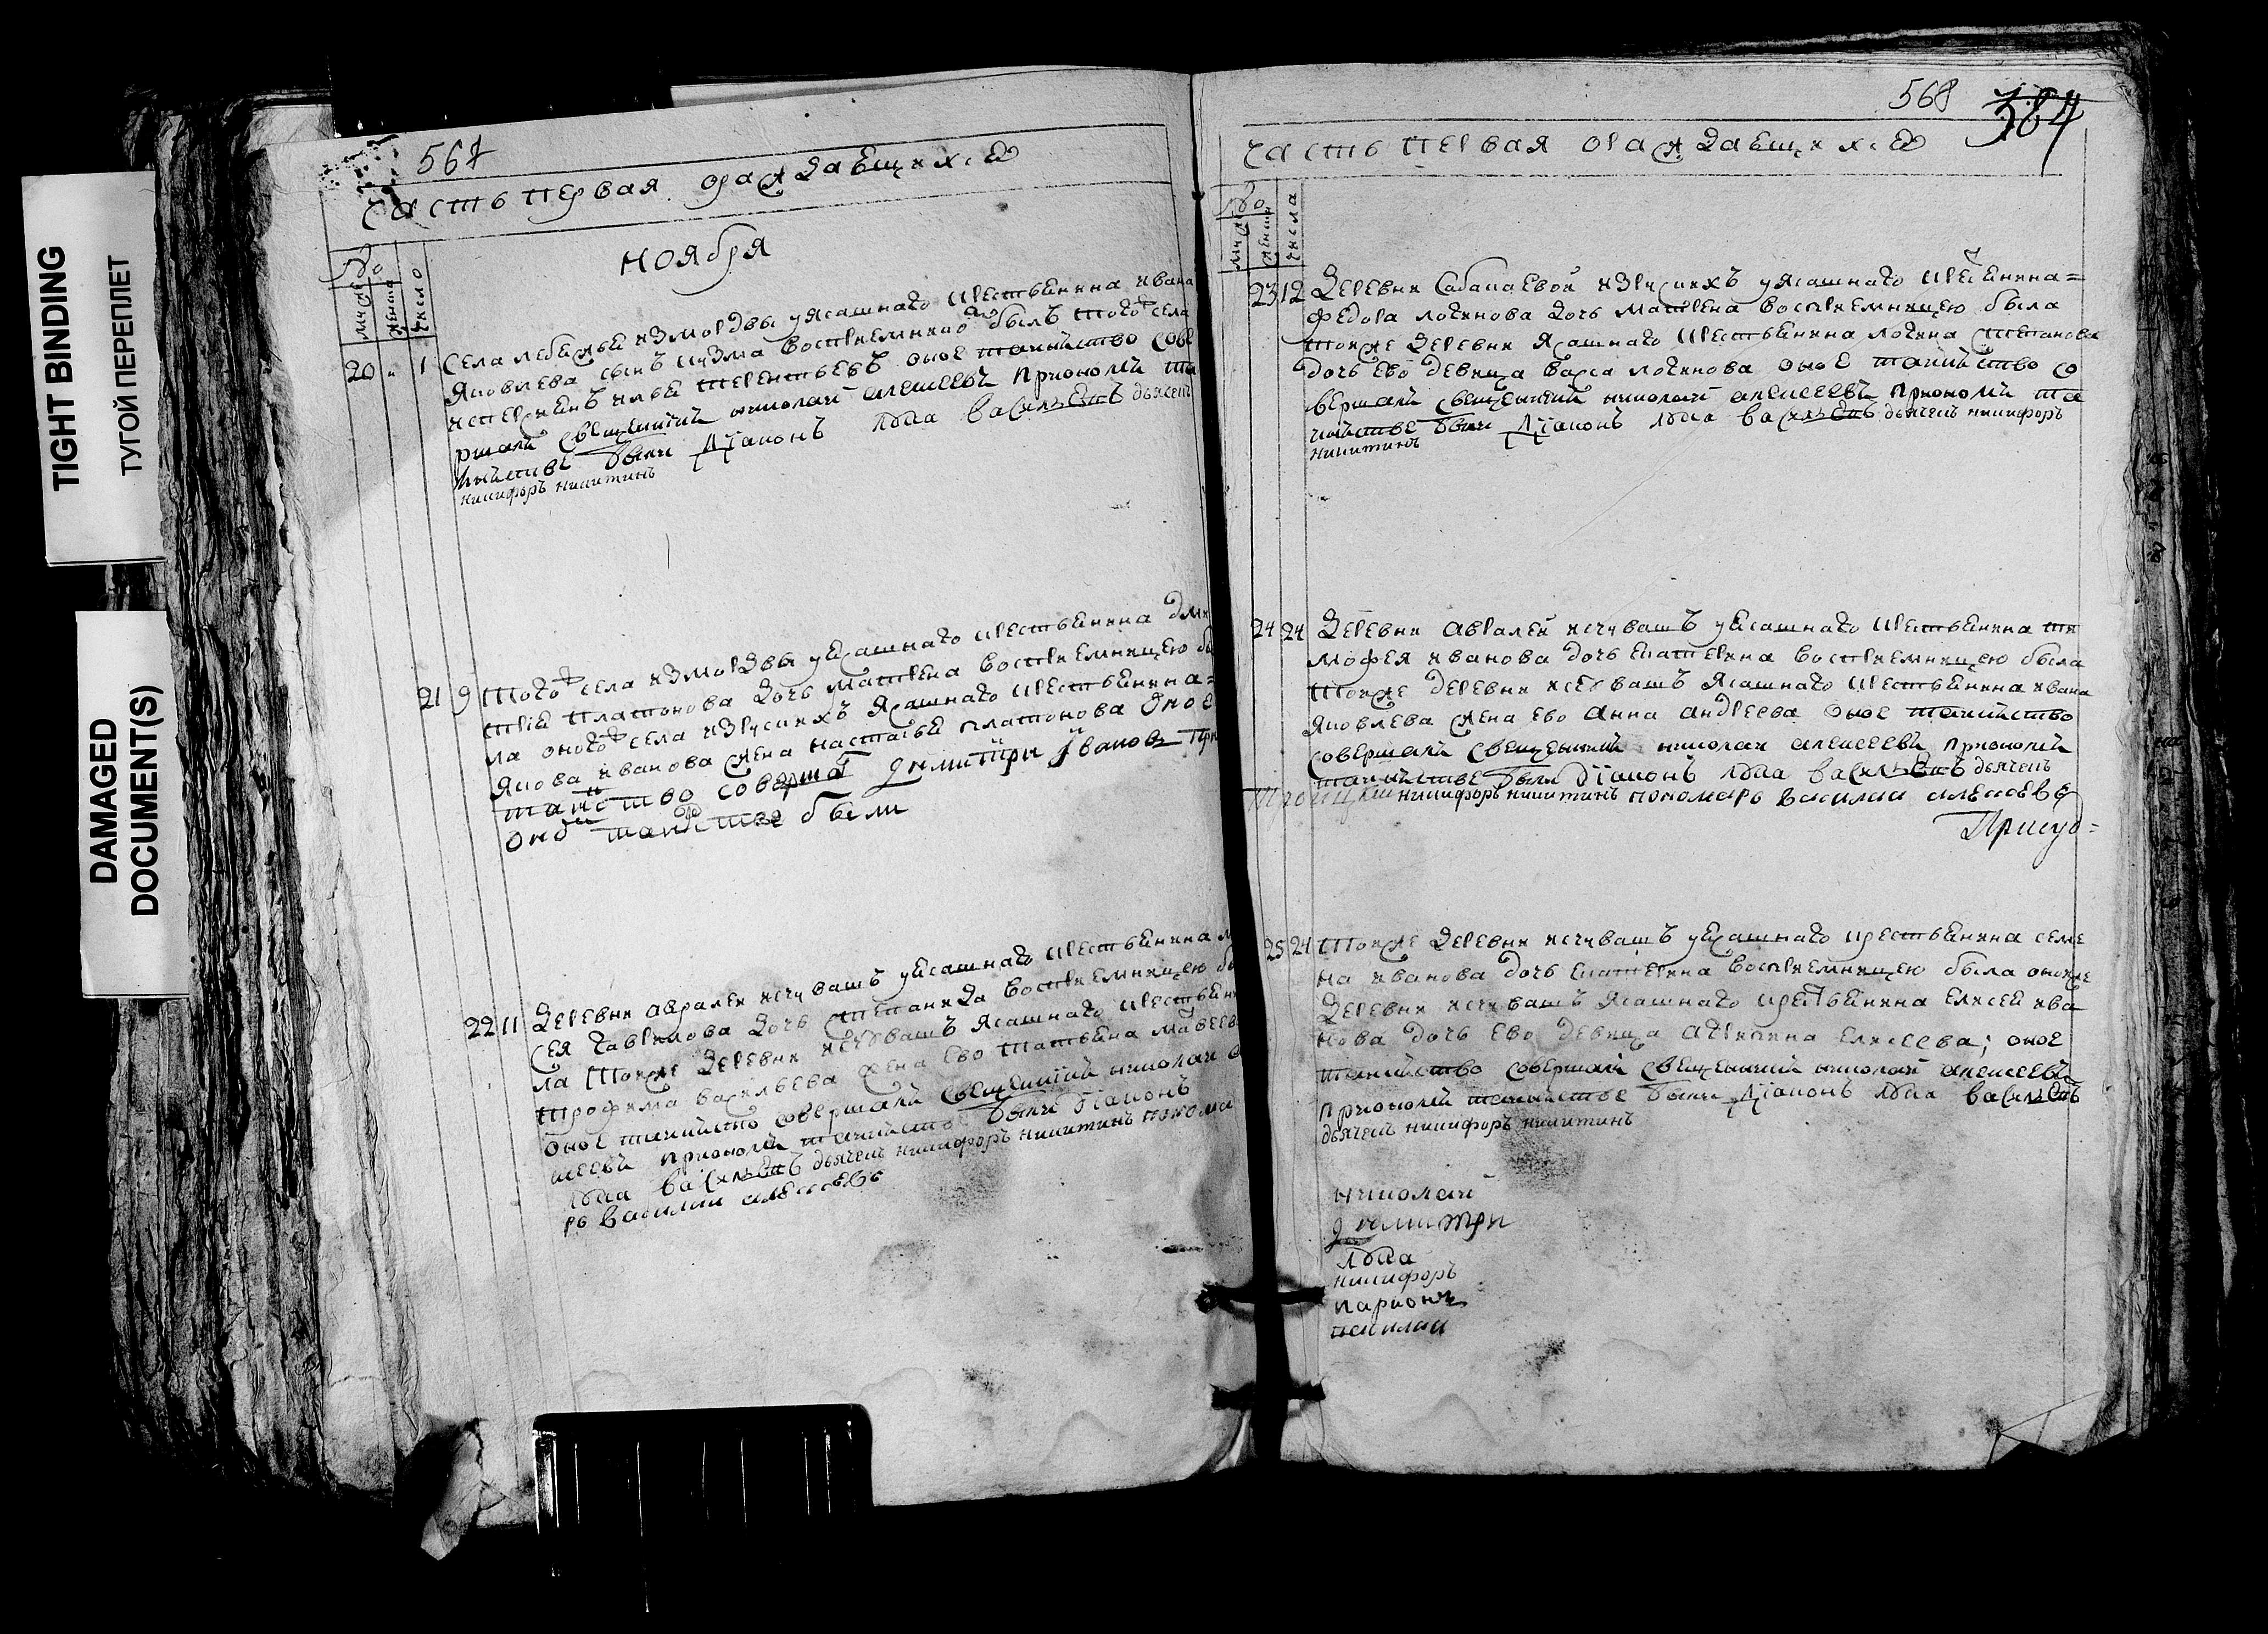 TIGHT BINDING
ТУГОЙ ПЕРЕПЛЕТ
DAMAGED
DOCUMENT(S)
567
часть первая ораждающихся
ноября
число
20 " 1 Села изморды уясашнаго крестьянина ивана
Яковлева сынъ кузма восприемникъ былъ того села
терентьевъ оное таинство сове
ршалъ священникъ николай алексеевъ приономъ та
инстве были Діаконъ лука васильевъ дьячекъ
никифоръ никитинъ
21 9 того села измордвы уясашнаго крестьянина дми
трія платонова дочь матрена восприемницею бы
ла оного села изрускихъ ясашнаго крестьянина=
якова иванова жена настасья платонова оное
таинство совершал димитри Іванов при
оном таинстве были
22 11 Деревни авралеи исчувашъ уясашнаго крестьянина
сея гаврилова дочь степанида восприемницею бы
ла тоеже деревни исчувашъ ясашнаго крестьяни
трофима васильева жена ево татьяна
оное таинство совершалъ священникъ николаи
ксеевъ приономъ таинстве были діаконъ
лука васильевъ дьячекъ никифоръ никитинъ понома
рь василии алексеевъ
568 384
часть первая ораждающихся
числа
23 12 Деревни Сабакаевой изрускихъ уясашнаго крестьянина=
федора логинова дочь матрена восприемницею была
тоеже деревни ясашнаго крестьянина логина степанова
дочь ево девица логинова оное таинство со
вершалъ священникъ николай алексеевъ приономъ та
инстве были Діаконъ лука васильевъ дьячекъ никифоръ
никитинъ
24 24 Деревни авралеи исчувашъ уясашнаго крестьянина ти
мофея иванова дочь екатерина восприемницею была
тоеже деревни исчувашъ ясашнаго крестьянина ивана
яковлева жена ево анна андреева оное таинство
совершалъ священникъ николаи алексеевъ приономъ
таинстве были діаконъ лука васильевъ дьячекъ
никифоръ никитинъ пономарь василии алексеевъ
25 24 тоеже деревни исчувашъ уясашнаго крестьянина семе
на иванова дочь екатерина восприемницею была оноеже
деревни исчувашъ ясашнаго крестьянина елисея ива
нова дочь ево девица елисеева; оное
таинство совершалъ священникъ николай алексеевъ
приономъ таинстве были Діаконъ лука васильевъ
дьячекъ никифоръ никитинъ
николай
димитри
лука
никифоръ
ларионъ
василии